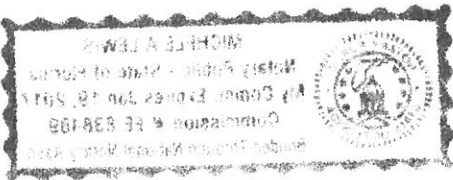 MICHELE A LEWIS
Notary Public - State of Florida
My Comm. Expires Jan 19, 2017
Commission # EE
Bonded Through National Notary Assn.